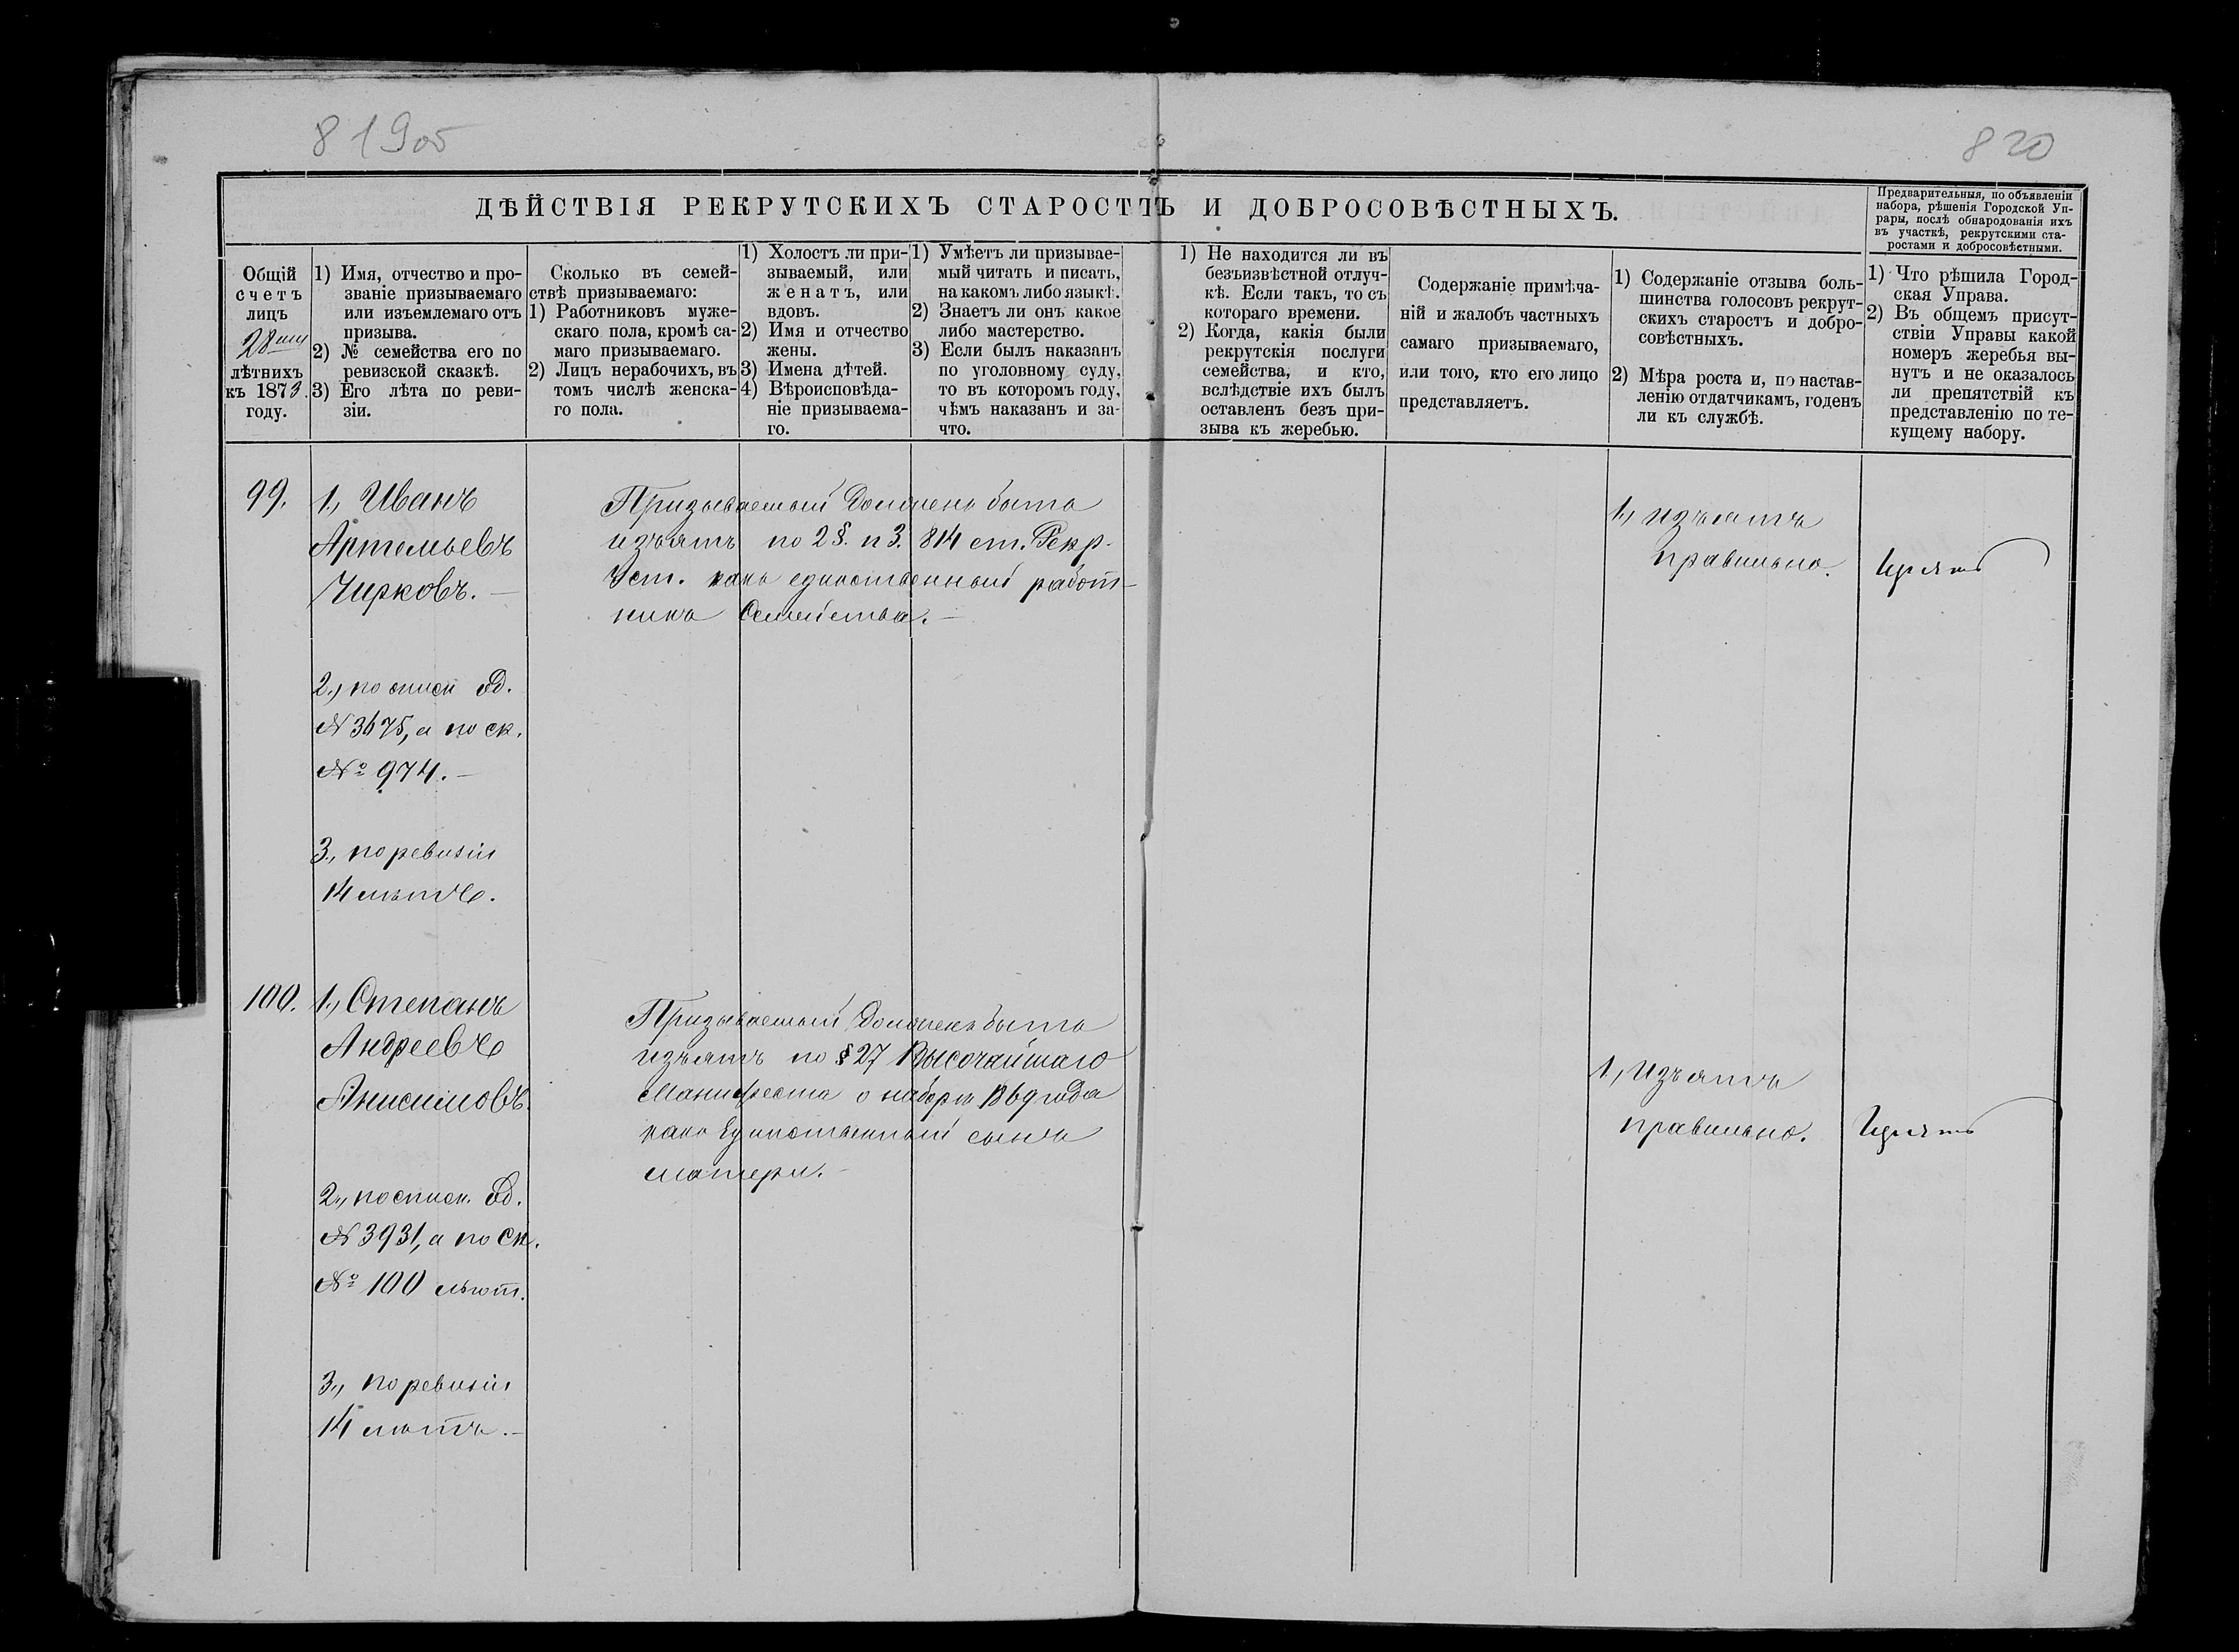 819об
820
ДѢЙСТВІЯ РЕКРУТСКИХЪ СТАРОСТЪ И ДОБРОСОВѢСТНЫХЪ.
Предварительныя, по объявленіи
набора, рѣшенія Городской Уп-
равы, послѣ обнародованія ихъ
въ участкѣ, рекрутскими ста-
ростами и добросовѣстными.
Общій
счетъ
лицъ
28ми
лѣтнихъ
къ 1873.
году.
1) Имя, отчество и про-
званіе призываемаго
или изъемлемаго отъ
призыва.
2) № семейства его по
ревизской сказкѣ.
3) Его лѣта по реви-
зіи.
Сколько въ семей-
ствѣ призываемаго:
1) Работниковъ муже-
скаго пола, кромѣ са-
маго призываемаго.
2) Лицъ нерабочихъ, въ
томъ числѣ женска-
го пола.
1) Холостъ ли при-
зываемый, или
женатъ, или
вдовъ.
2) Имя и отчество
жены.
3) Имена дѣтей.
4) Вѣроисповѣда-
ніе призываема-
го.
1) Умѣетъ ли призывае-
мый читать и писать,
на какомъ либо языкѣ.
2) Знаетъ ли онъ какое
либо мастерство.
3) Если былъ наказанъ
по уголовному суду,
то въ которомъ году,
чѣмъ наказанъ и за-
что.
1) Не находится ли въ
безъизвѣстной отлуч-
кѣ. Если такъ, то съ
котораго времени.
2) Когда, какія были
рекрутскія послуги
семейства, и кто,
вслѣдствіе ихъ былъ
оставленъ безъ при-
зыва къ жеребью.
Содержаніе примѣча-
ній и жалобъ частныхъ
самаго призываемаго,
или того, кто его лицо
представляетъ.
1) Содержаніе отзыва боль-
шинства голосовъ рекрут-
скихъ старостъ и добро-
совѣстныхъ.
2) Мѣра роста и, по настав-
ленію отдатчикамъ, годенъ
ли къ службѣ.
1) Что рѣшила Город-
ская Управа.
2) Въ общемъ присут-
ствіи Управы какой
номеръ жеребья вы-
нутъ и не оказалось
ли препятствій къ
представленію по те-
кущему набору.
99.
1., Иванъ
Артемьевъ
Чирковъ. —
2., по списк Об.
№ 3675, а по ск.
№ 974. —
3., по ревизіи
14 лѣтъ.
Призываемый долженъ быть
изъятъ по 2 §. п 3. 814 ст. Рекр.
Уст. какъ единственный работ-
никъ семейства. —
1., изъятъ
правильно.
Изъять
100.
1., Степанъ
Андреевъ
Анисимовъ.
2., по списк. Об.
№ 3931, а по Ск.
№ 100 льгот.
3., по ревизіи
14 лѣтъ. —
Призываемый долженъ быть
изъятъ по § 27 Высочайшаго
Манифеста о наборѣ 1869 года
какъ Единственный сынъ
матери. —
1., Изъятъ
правильно.
Изъять